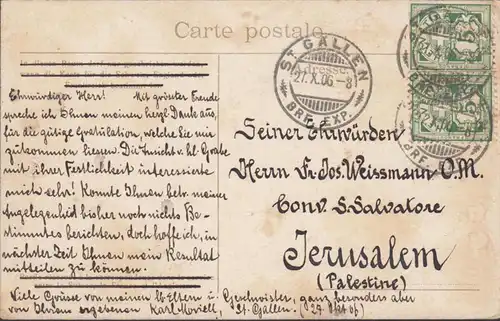 Carte postale.
Adresse.
ST GALLEN
27.X.06.-8
BRF. EXP.
Ehrwürdiger Herr! Mit grösster Freude
spreche ich Ihnen meinen herzl. Dank aus,
für die gütige Gratulation, welche Sie mir
zukommen liessen. Die Ansicht v. hl. Grabe
mit ihrer Festlichkeit interessierte
mich sehr! Konnte Ihnen betr. meiner
Angelegenheit bisher noch nichts Be-
stimmtes berichten, doch hoffe ich, in
nächster Zeit Ihnen mein Resultat
mitteilen zu können.
Viele Grüsse von meinen lb. Eltern u. Geschwister, ganz besonders aber
von Ihrem ergebenen Karl St. Gallen. (27. Okt. 06)
Seiner Ehrwürden
Herrn Fr. Jos. Weissmann O.M.
Conv. S. Salvatore
Jerusalem
(Palestine)